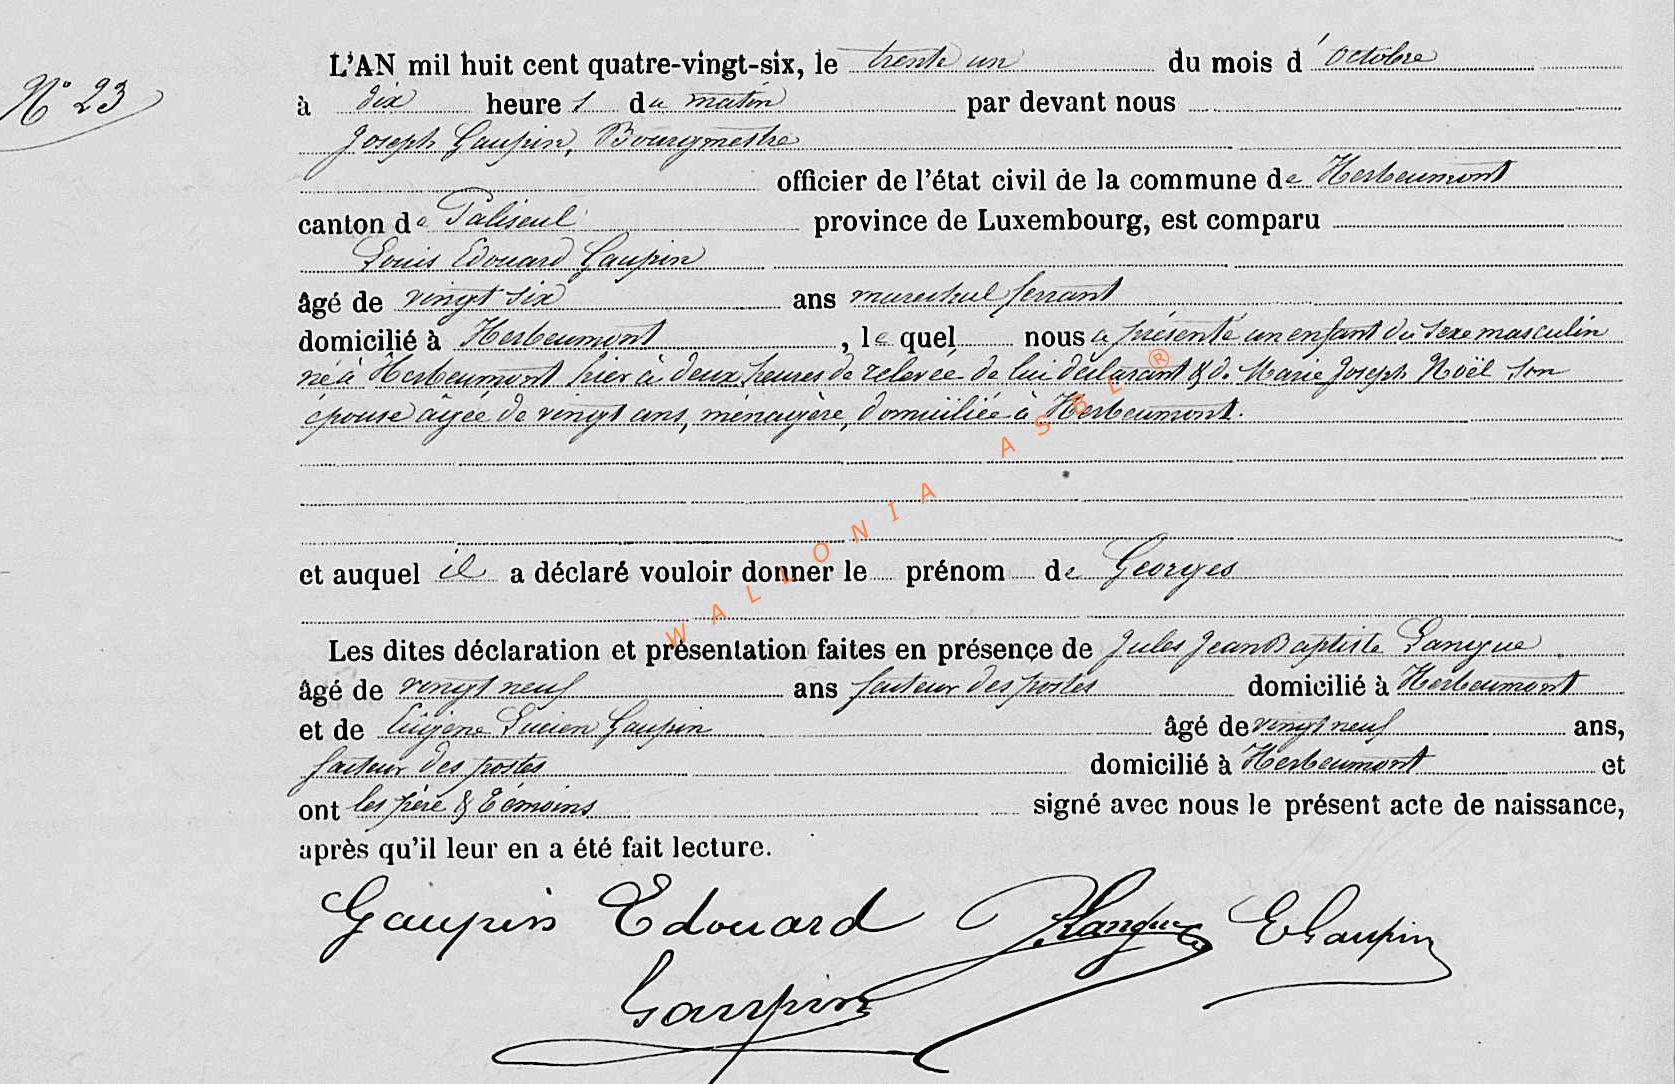 N° 23
L'AN mil huit cent quatre-vingt-six, le trente un du mois d'octobre
à dix heures du matin par devant nous
Joseph Gaupin, Bourgmestre
officier de l'état civil de la commune de Herbeumont
canton de Paliseul province de Luxembourg, est comparu
Louis Edouard Gaupin
âgé de vingt six ans marechal ferrant
domicilié à Herbeumont, le quel nous a présenté un enfant du sexe masculin
né à Herbeumont hier à deux heures de relevée de lui déclarant & de Marie Joseph Noël son
épouse âgée de vingt ans, ménagère, domiciliée à Herbeumont.
et auquel il a déclaré vouloir donner le prénom de Georges
Les dites déclaration et présentation faites en présence de Jules Jean Baptiste Langue
âgé de vingt neuf ans facteur des postes domicilié à Herbeumont
et de Eugène Lucien Gaupin âgé de vingt neuf ans,
facteur des postes domicilié à Herbeumont et
ont les père & témoins signé avec nous le présent acte de naissance,
après qu'il leur en a été fait lecture.
Gaupin Edouard JLangue EGaupin
Gaupin
WALLONIA ASBL ®